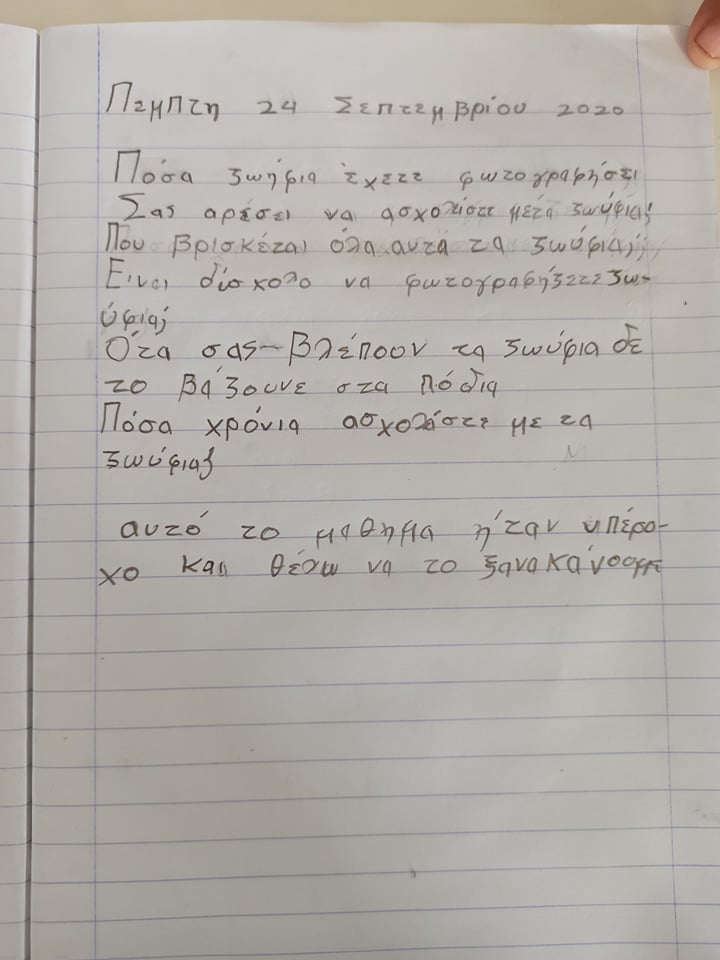 Πεμπτη 24 Σεπτεμβρίου 2020
Πόσα ζωήφια έχετε φωτογραφήσει
Σας αρέσει να ασχολίστε μετά ζωύφια;
Που βρισκέται όλα αυτά τα ζωύφια;
Ειναι δύσχολο να φωτογραφήζετε ζω-
ύφια;
Ότα σας βλέπουν τα ζωύφια δε
το βάζουνε στα πόδια
Πόσα χρόνια ασχολίστε με τα
ζωύφια;
αυτό το μαθημα ήταν υπέρο-
χο και θέλω να το ξανακάνουμε